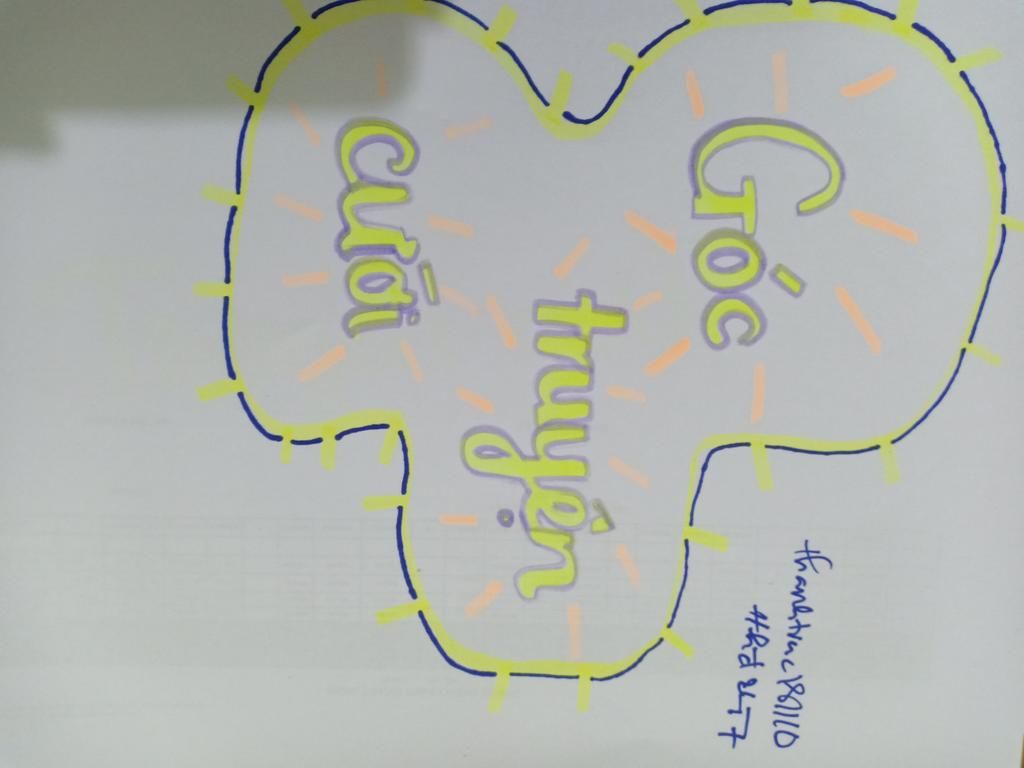 Góc
truyện
cười
thanhtruc181110